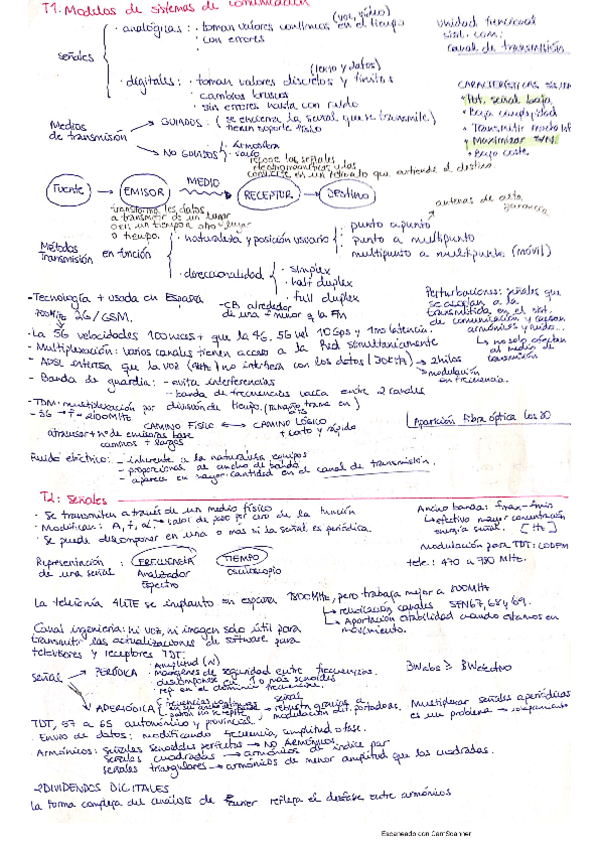 T1: Modelos de sistemas de comunicación
señales
· analógicas: · toman valores continuos en el tiempo (voz, video)
· con errores
· digitales: · toman valores discretos y finitos (texto y datos)
· cambios bruscos
· sin errores hasta con ruido
unidad funcional
sist. com:
canal de transmisión
CARACTERÍSTICAS
· Pot. señal baja
· Baja complejidad
· Transmitir mucha
· Maximizar S/N
· Bajo coste
Medios de transmisión
GUIADOS: (se encierra la señal que se transmite)
tienen soporte físico
NO GUIADOS
· Atmosfera
· vacío
recoge las señales
electromagnéticas y las
convierte en un formato que entiende el destino
Fuente → EMISOR
MEDIO
RECEPTOR → Destino
transforma los datos
a transmitir de un lugar
o en un tiempo a otro lugar
o tiempo.
antenas de alta
ganancia
Métodos
Transmisión en función
· naturaleza y posición usuario
· punto a punto
· punto a multipunto
· multipunto a multipunto (móvil)
· direccionalidad
· simplex
· half duplex
· full duplex
- Tecnología + usada en España
2G/GSM.
- CB alrededor
de una
menor q la FM
Perturbaciones: señales que
se acoplan a la
transmitida en el sist.
de comunicación y causan
armónicos y ruido...
↳ no solo afectan
al medio de
transmisión
· La 5G velocidades 100 veces + que la 4G. 5G vel 10 Gbps y 1ms latencia.
- Multiplexación: varios canales tienen acceso a la Red simultáneamente
- ADSL interesa que la voz (4kHz) no interfiera con los datos (30kHz) → 2 hilos
→ modulación
en frecuencia.
- Banda de guardia: - evita interferencias
- banda de frecuencias vacía entre 2 canales
- TDM: multiplexación por división de tiempo. (Tamaño trama en )
- 3G → f = 2100MHz
CAMINO FÍSICO ↔ CAMINO LÓGICO
atraviesa + nº de emisoras base
caminos + largos
+ corto y rápido
Aparición Fibra óptica los 80
Ruido eléctrico: - inherente a la naturaleza equipos
- proporcional al ancho de banda
- aparece en mayor cantidad en el canal de transmisión.
T2: Señales
· Se transmiten a través de un medio físico
· Modifican: A, f, α: valor de paso por cero de la función
· Se puede descomponer en una o mas si la señal es periódica.
Ancho banda: fmax - fmin
↳ efectivo mayor concentración
energía señal. [Hz]
modulación para TDT: COFDM
tele: 470 a 790 MHz.
Representación
de una señal
: FRECUENCIA
Analizador
Espectro
TIEMPO
Osciloscopio
La telefonía 4LTE se implanto en españa 1800MHz, pero trabaja mejor a 800MHz
↳ reubicación canales SFN 67, 68 y 69.
↳ Aportación estabilidad cuando estamos en
movimiento.
Canal ingeniería: ni voz, ni imagen solo útil para
transmitir las actualizaciones de software para
televisores y receptores TDT.
señal
PERIÓDICA
· Amplitud (N)
· márgenes de seguridad entre frecuencias.
· descomponer en 1 o más senoides
· rep. en el dominio frecuencia.
BWabs ≥ BWefectivo
APERIÓDICA
señal
→ robusta gracias a
modulación dif. portadoras.
Multiplexar señales aperiódicas
es un problema →
TDT, 57 a 65 autonómico y provincial
· Envío de datos: modificando frecuencia, amplitud o fase.
· Armónicos: señales senoidales perfectas → NO ARMÓNICOS
señales cuadradas → armónicos de índice par
señales triangulares → armónicos de menor amplitud que las cuadradas.
→ 2 DIVIDENDOS DIGITALES
la forma compleja del análisis de Fourier refleja el desfase entre armónicos
Escaneado con CamScanner